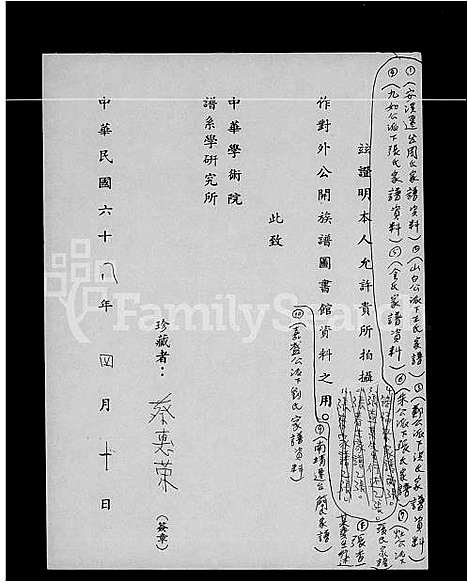 ①(安溪遷台周氏家譜資料)②(山白公派下王氏家譜)③(鄭公派下洪氏家譜資料)
④(九如公派下張氏家譜資料)⑤(余氏家譜資料)⑥(朱公派下張氏家譜)⑦
茲證明本人允許貴所拍攝
張氏家譜
⑧張
作對外公開族譜圖書館資料之用。⑨(南靖遷台簡氏家譜)
⑩(嘉盛公派下劉氏家譜資料)
此致
中華學術院
譜系學研究所
珍藏者：蔡惠荣(簽章)
中華民國六十八年四月十日
FamilySearch